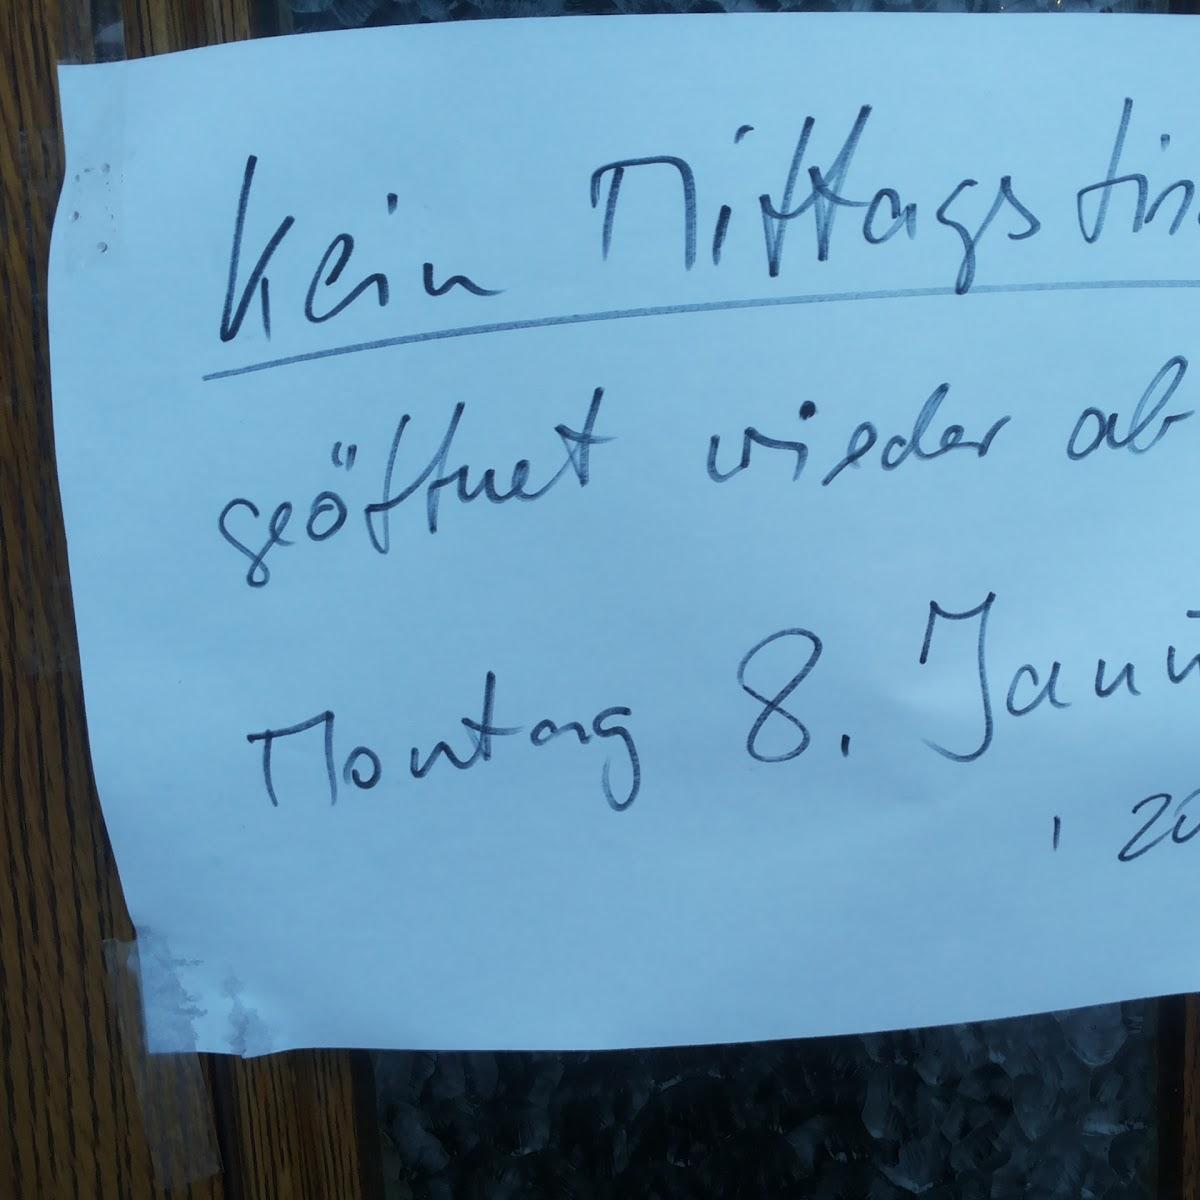 Kein Mittagstis
geöffnet wieder ab
Montag 8. Janu
, 20